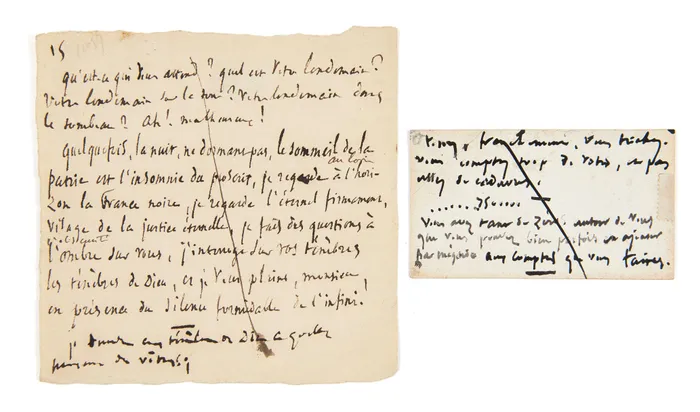 15
qu'est-ce qui vous attend ? quel est votre lendemain ?
Votre lendemain sur le trône ? Votre lendemain dans
le tombeau ? Ah ! malheureux !
Quelquefois, la nuit, ne dormant pas, le sommeil de la
patrie est l'insomnie du proscrit, je regarde à l'hori-
au loin
zon la France noire, je regarde l'éternel firmament,
visage de la justice éternelle, je fais des questions à
l'ombre sur vous, j'interroge sur vos ténèbres
les ténèbres de Dieu, et je vous plains, monsieur,
en présence du silence formidable de l'infini.
je demande aux ténèbres de Dieu ce qu'elles
pensent des vôtres,
vous comptez trop de votes, et pas
assez de
Vous avez tant de zéros autour de vous
que vous pouvez bien parfois en ajouter
par mégarde aux comptes que vous faites.